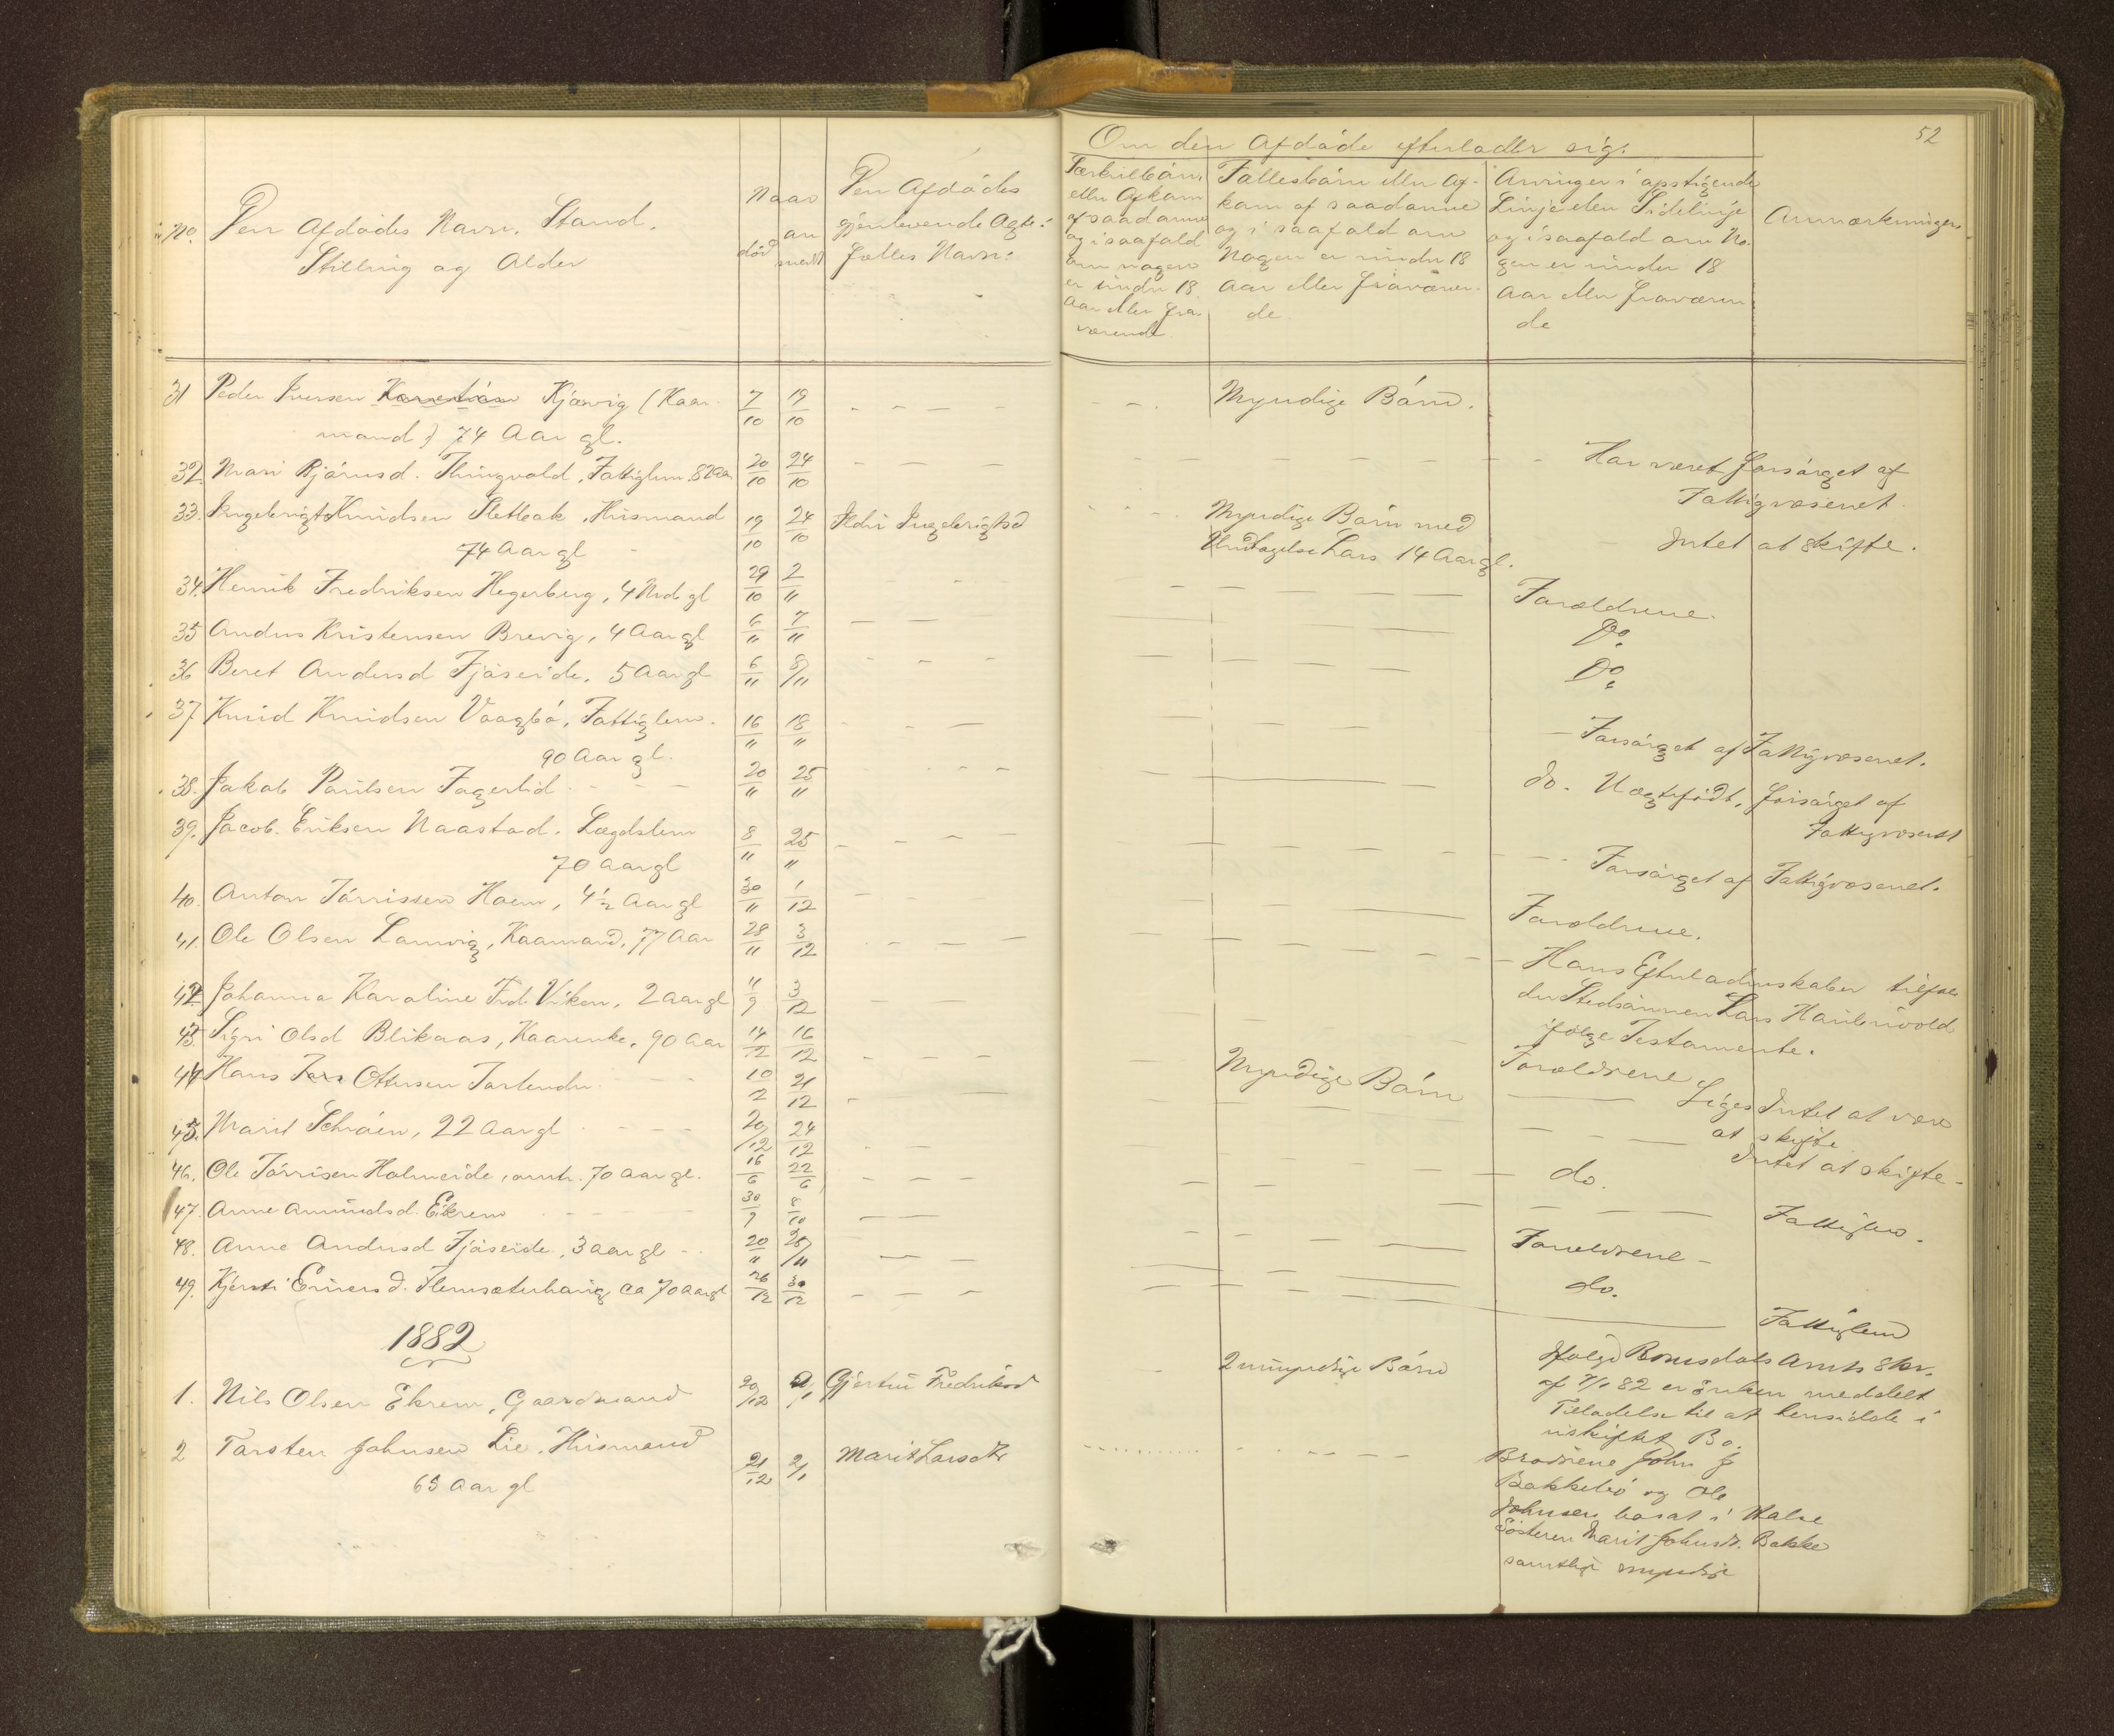 52
No.
Den Afdødes Navn, Stand,
Stilling og Alder
Naar
død
an
meldt
Den Afdødes
gjenlevende Ægte:
fælles Navn:
Om den Afdøde efterlader sig:
Særkulbørn
eller Afkom
af saadanne
og i saafald
om nogen
er under 18
Aar eller fra
værende
Fællesbørn eller Af-
kom af saadanne
og i saafald om
Nogen er under 18
Aar eller fraværen-
de
Arvinger i opstigende
Linje eller Sidelinje
og i saafald om No-
gen er under 18
Aar eller fraværen
de
Anmærkninger
31 Peder Iversen Kjørvig (Kaar- 7/10 19/10 Myndige Børn.
mand) 74 Aar gl.
32. Mari Bjørnsd. Thingvold, Fattiglem 82 Aar 20/10 24/10 Har været forsørget af
Fattigvæsenet
33. Ingebrigt Knudsen Sletbak, Husmand 19/10 24/10 Ildri Ingebrigtsd Myndige Børn med
74 Aar gl Undtagelse Lars 14 Aar gl. Intet at skifte.
34. Henrik Fredriksen Hegerberg, 4 Mdr gl 29/10 2/11 Forældrene.
35 Anders Kristensen Brevig, 4 Aar gl 6/11 7/11 Do.
36 Beret Andersd Fjøseide, 5 Aar gl 6/11 8/11 Do.
37 Knud Knudsen Vaagbø, Fattiglem. 16/11 18/11 Forsørget af Fattigvæsenet.
90 Aar gl.
38. Jakob Paulsen Fagerlid 20/11 25/11 do. Uægtefødt, forsørget af
Fattigvæsenet
39. Jacob Eriksen Naastad. Lægdslem 8/11 25/11 Forsørget af Fattigvæsenet.
70 Aar gl
40. Anton Tørrissen Hoem, 4½ Aar gl 30/11 1/12 Forældrene.
41. Ole Olsen Lamvig, Kaarmand, 77 Aar 28/11 3/12 Hans Efterladenskaber tilfal
der Stedsønnen Lars
ifølge Testamente.
42 Johanna Karoline Fred. Viken, 2 Aar gl 11/9 3/12 Forældrene
43. Sigri Olsd Blikaas, Kaarenke, 90 Aar 14/12 16/12 Myndige Børn Siges Intet at være
at skifte
44 Hans Ottersen Torlender 10/2 21/12 Intet at skifte
45. Marit Schrøen, 22 Aar gl 20/12 24/12 do.
46. Ole Tørrisen Holmeide, omtr. 70 Aar gl. 16/6 22/6 Fattiglem.
47. Anne Amundsd. Ekrem 30/9 8/10 Forældrene
48. Anne Andersd Fjøseide, 3 Aar gl 20/11 25/11 do.
49. Kjersti Einersd. ca 70 Aar gl 26/12 30/12 Fattiglem
1882
1. Nils Olsen Ekrem, Gaardmand 20/12 Gjertru Fredriksd 2 umyndige Børn Ifølge Romsdals Amts Skr.
af 7/1 82 er Enken meddelt
Tilladelse til at hensidde i
uskiftet Bo.
2 Torsten Johnsen Lie, Husmand 21/12 2/1 Marit Larsdtr Brødrene John J
65 Aar gl Bakkebø og Ole
Johnsen bosat i Halse
Søsteren Marit Johnsdr. Bakke
samtlige myndige